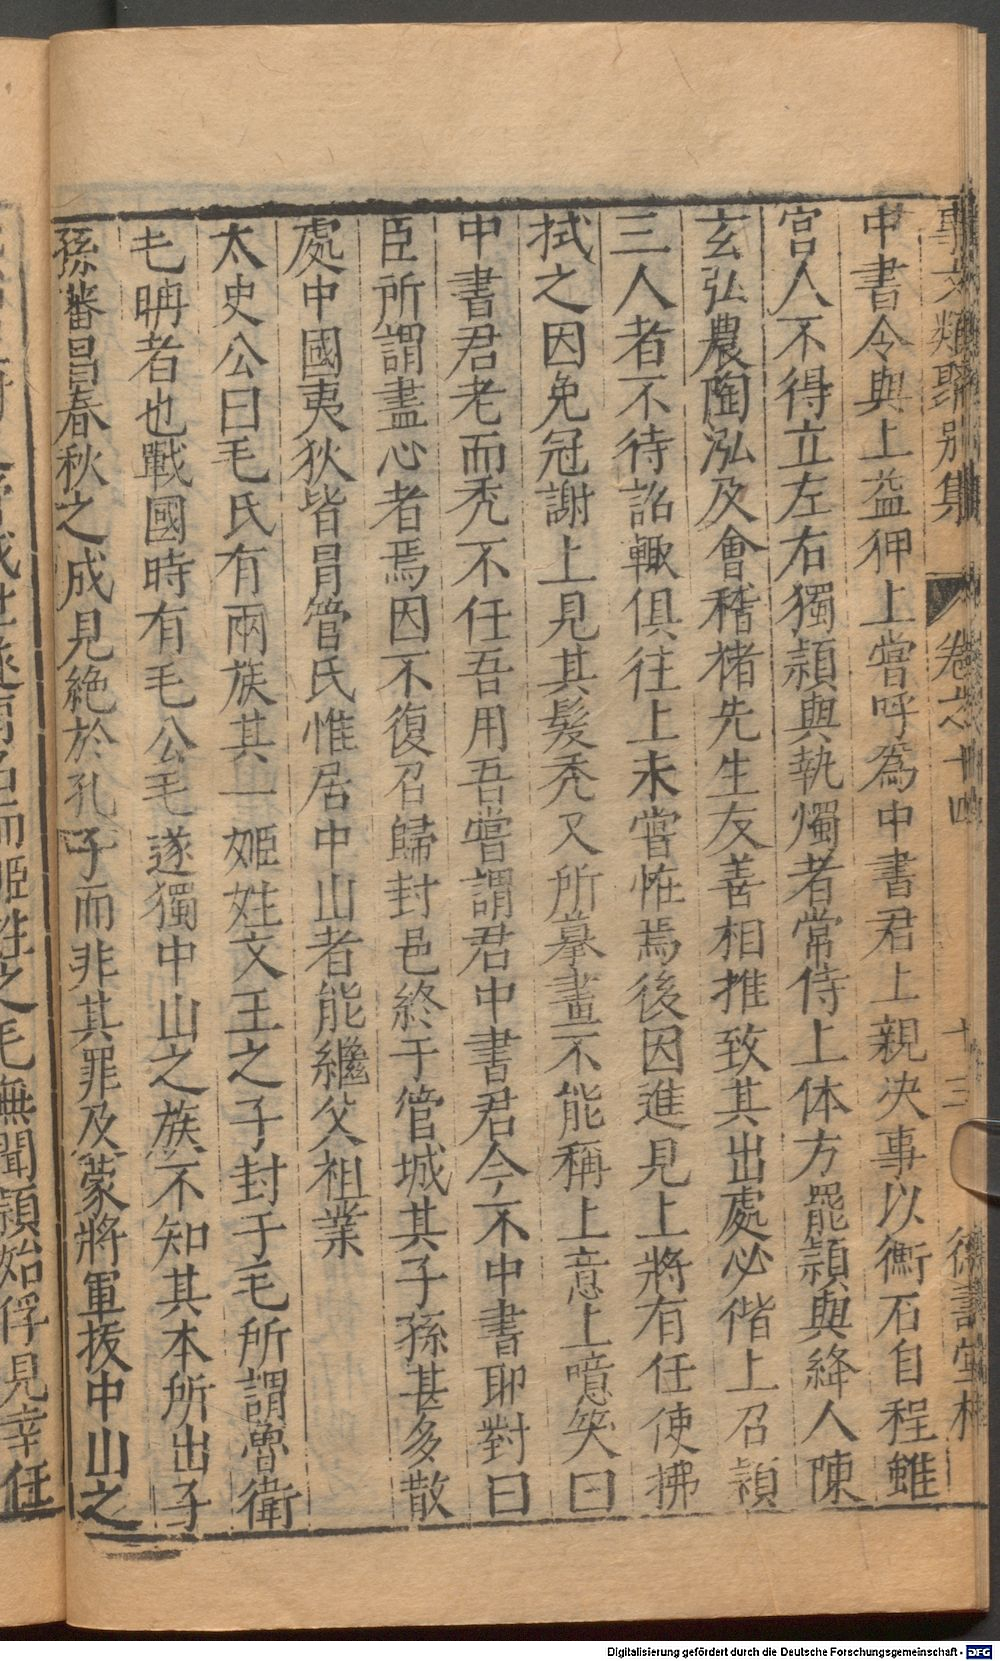 事文類聚別集 卷之十四 十三 德壽堂梓
中書令與上益狎上嘗呼爲中書君上親决事以衡石自程雖
宮人不得立左右獨頴與執燭者常侍上体方罷頴與絳人陳
玄弘農陶泓及會稽褚先生友善相推致其出處必偕上召頴
三人者不待詔輙俱往上未嘗恠焉後因進見上將有任使拂
拭之因免冠謝上見其髮秃又所摹畫不能稱上意上噫笑曰
中書君老而秃不任吾用吾嘗謂君中書君今不中書耶對曰
臣所謂盡心者焉因不復召歸封邑終于管城其子孫甚多散
處中國夷狄皆冐管氏惟居中山者能繼父祖業
太史公曰毛氏有兩族其一姬姓文王之子封于毛所謂魯衛
毛聃者也戰國時有毛公毛遂獨中山之族不知其本所出子
孫蕃昌春秋之成見絶於孔子而非其罪及蒙將軍拔中山之
管城世遂有名而姬姓之毛無聞頴始俘見幸任
Digitalisierung gefördert durch die Deutsche Forschungsgemeinschaft - DFG